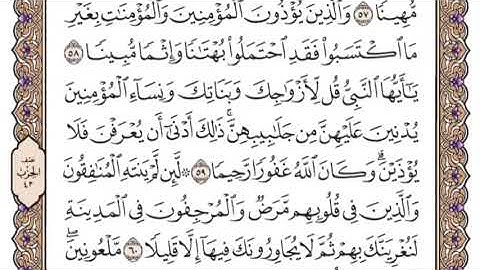 مُّهِينًا ٥٧ وَٱلَّذِينَ يُؤۡذُونَ ٱلۡمُؤۡمِنِينَ وَٱلۡمُؤۡمِنَٰتِ بِغَيۡرِ
مَا ٱكۡتَسَبُواْ فَقَدِ ٱحۡتَمَلُواْ بُهۡتَٰنٗا وَإِثۡمٗا مُّبِينٗا ٥٨
يَٰٓأَيُّهَا ٱلنَّبِيُّ قُل لِّأَزۡوَٰجِكَ وَبَنَاتِكَ وَنِسَآءِ ٱلۡمُؤۡمِنِينَ
يُدۡنِينَ عَلَيۡهِنَّ مِن جَلَٰبِيبِهِنَّۚ ذَٰلِكَ أَدۡنَىٰٓ أَن يُعۡرَفۡنَ فَلَا
يُؤۡذَيۡنَۗ وَكَانَ ٱللَّهُ غَفُورٗا رَّحِيمٗا ٥٩ ۞ لَّئِن لَّمۡ يَنتَهِ ٱلۡمُنَٰفِقُونَ
وَٱلَّذِينَ فِي قُلُوبِهِم مَّرَضٞ وَٱلۡمُرۡجِفُونَ فِي ٱلۡمَدِينَةِ
لَنُغۡرِيَنَّكَ بِهِمۡ ثُمَّ لَا يُجَاوِرُونَكَ فِيهَآ إِلَّا قَلِيلٗا ٦٠ مَّلۡعُونِينَۖ
نصف
الحزب
٤٣